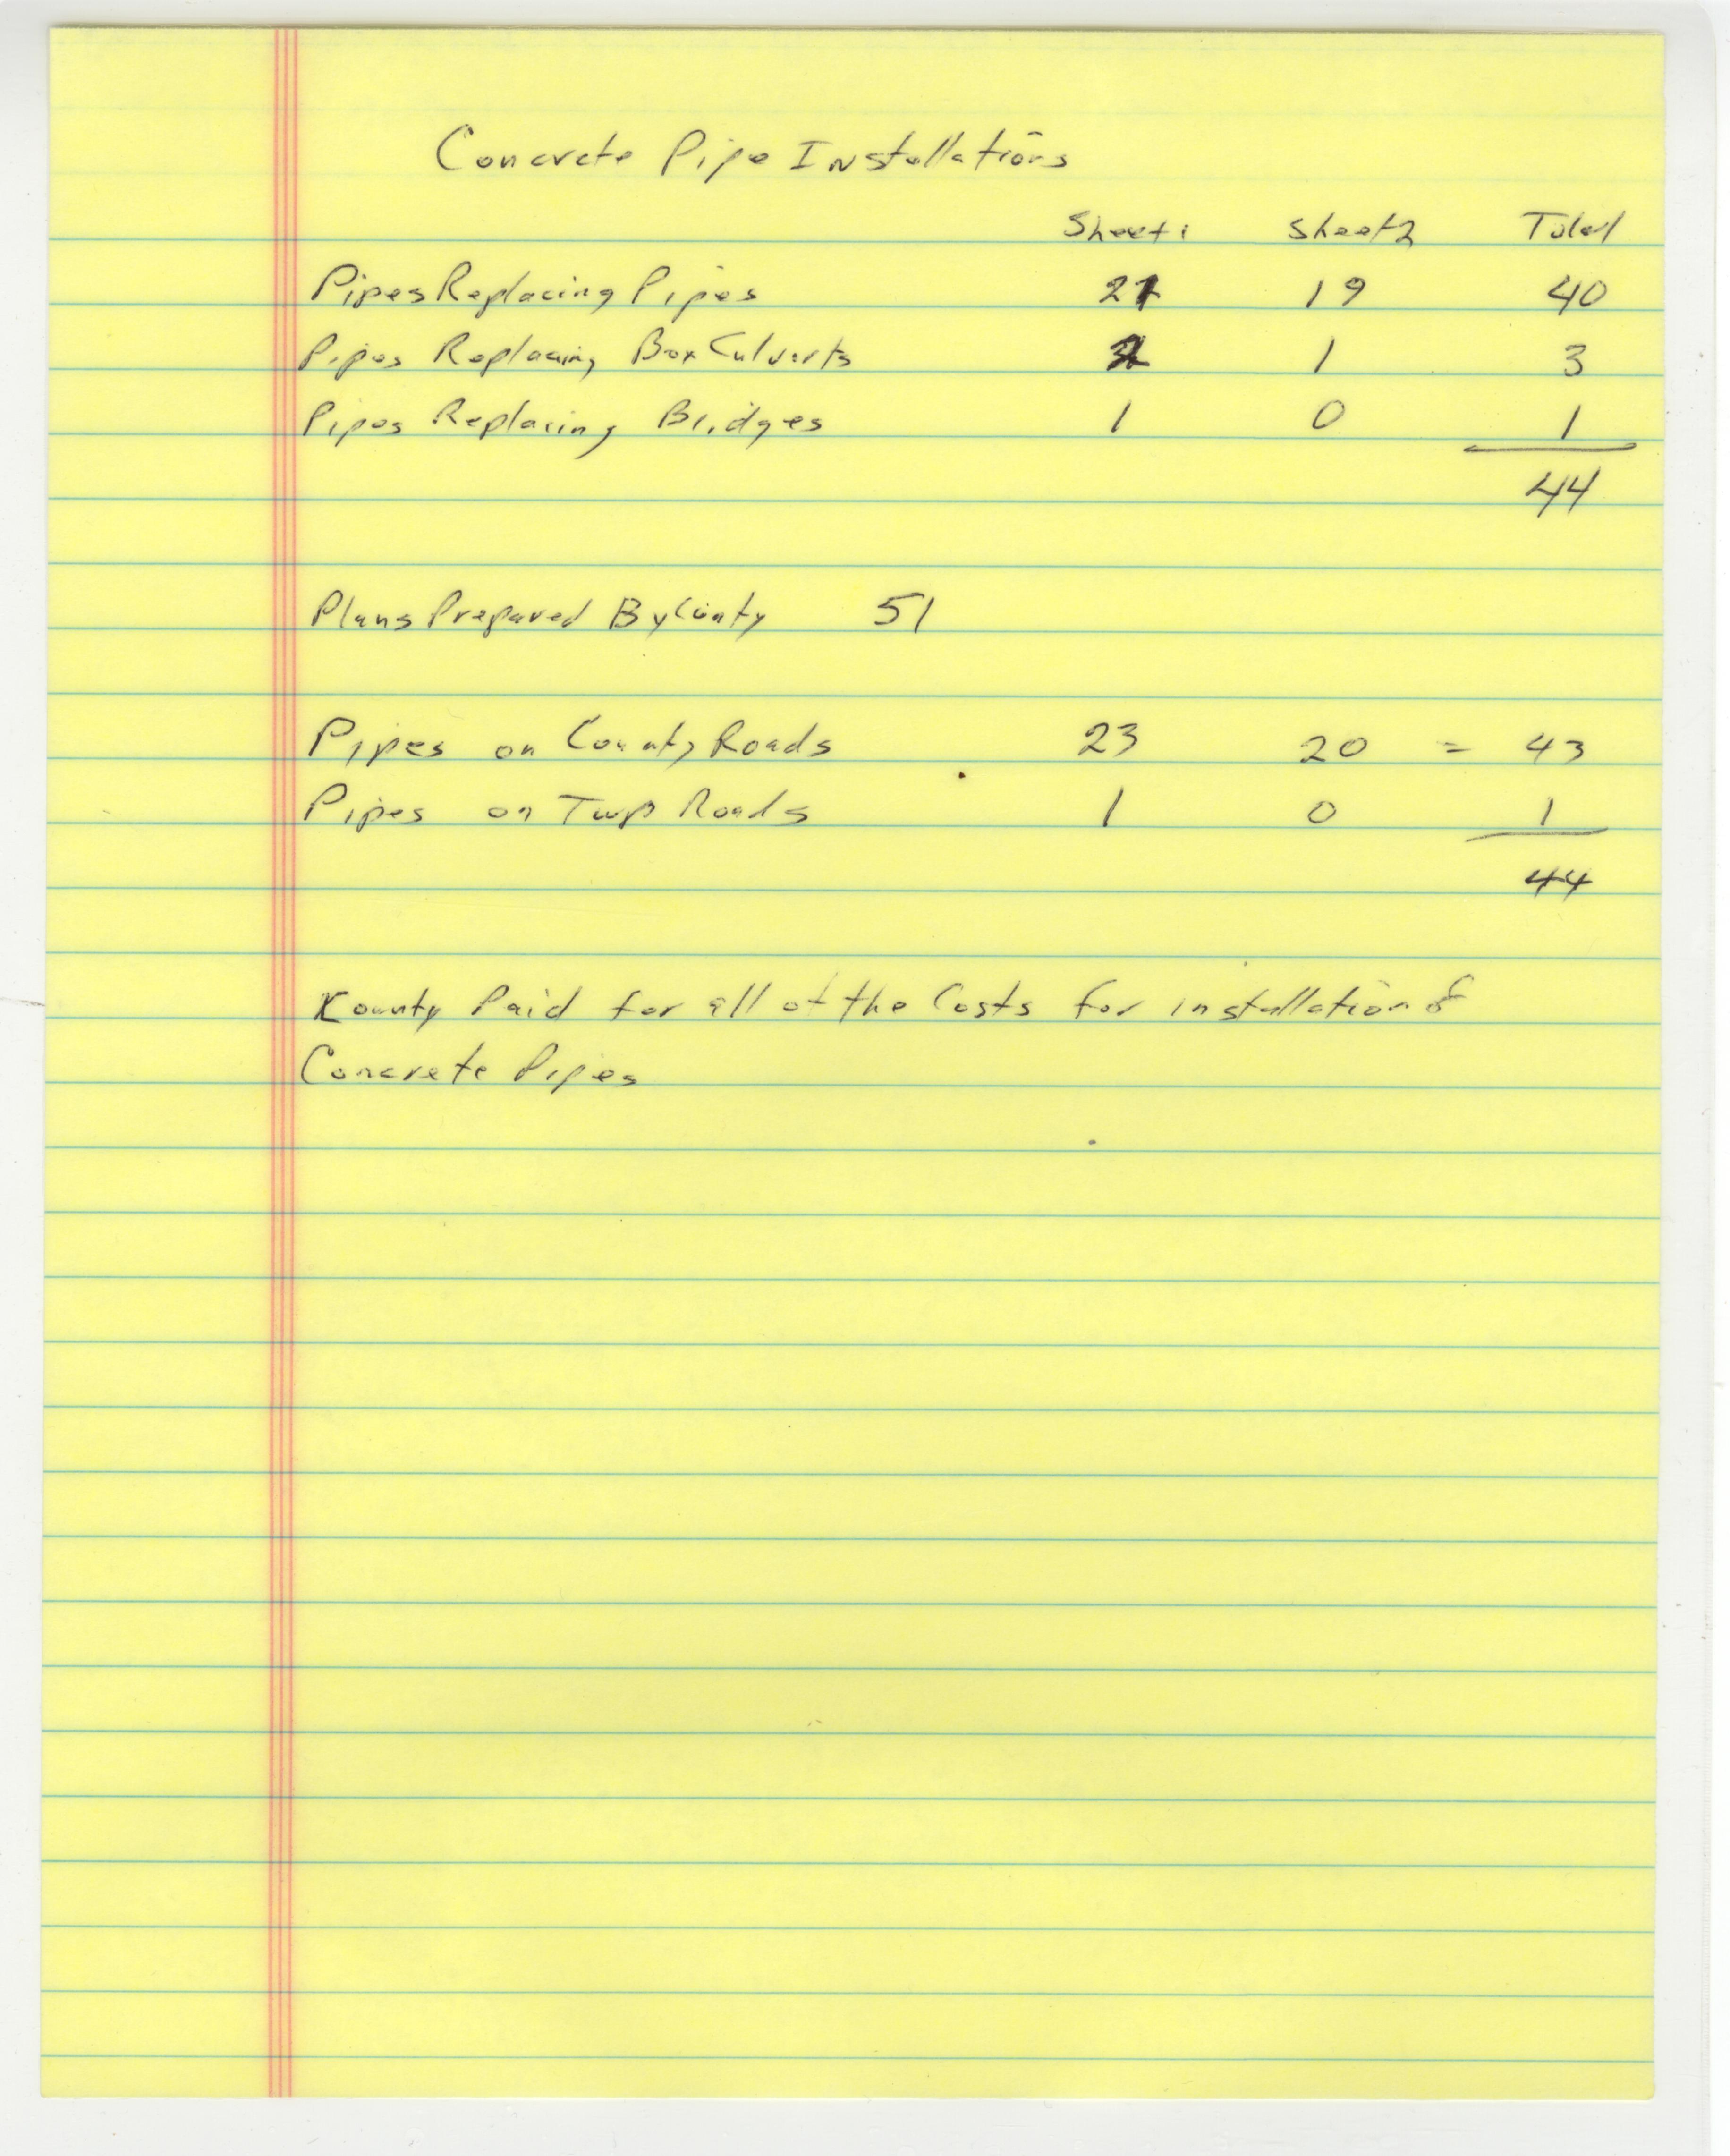 Concrete Pipe Installations
Sheet 1 Sheet 2 Total
Pipes Replacing Pipes 21 19 40
Pipes Replacing Box Culverts 2 1 3
Pipes Replacing Bridges 1 0 1
44
Plans Prepared By County 51
Pipes on County Roads 23 20 = 43
Pipes on Twp Roads 1 0 1
44
County Paid for all of the Costs for installation of
Concrete Pipes